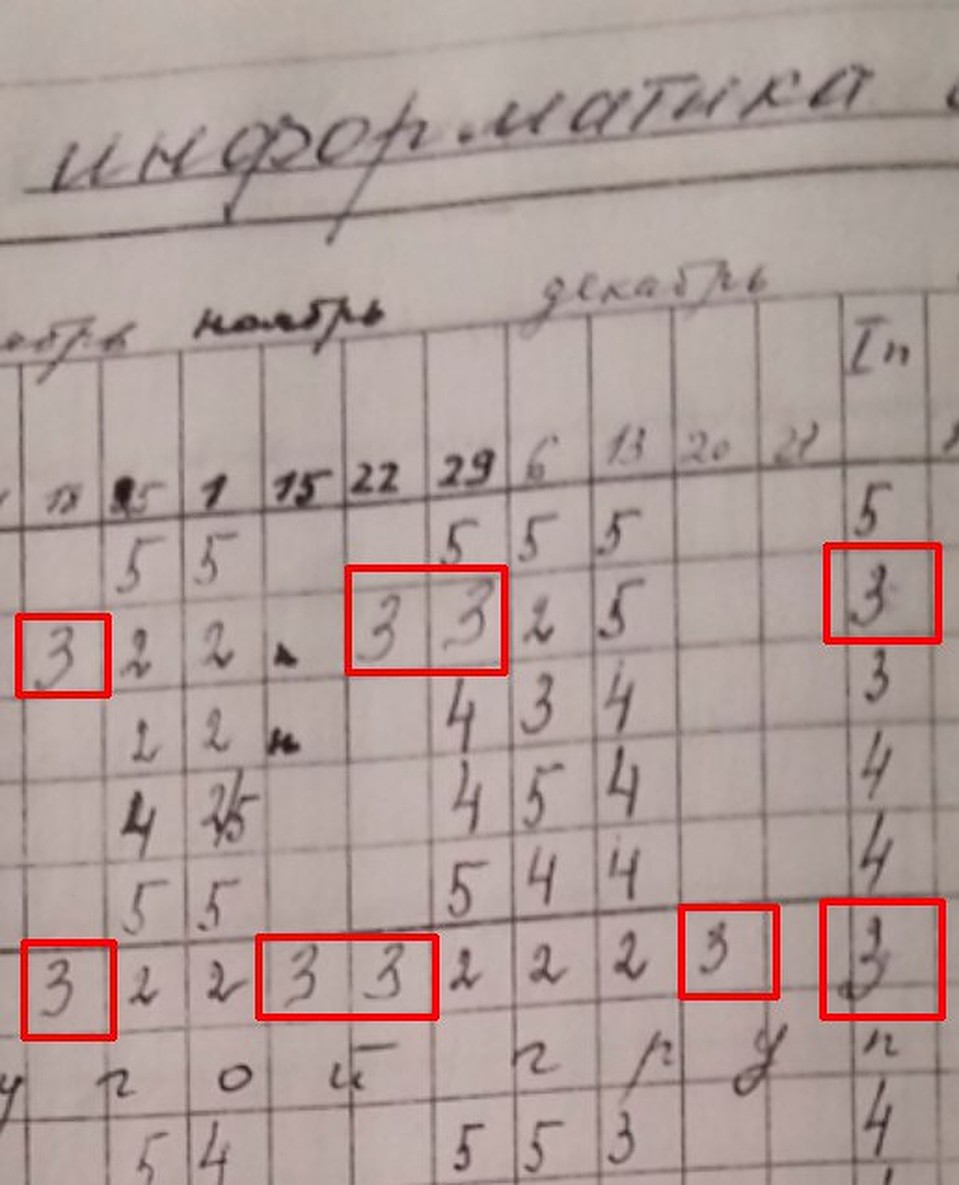 информатика
ябрь ноябрь декабрь
Iп
18 25 1 15 22 29 6 13 20 21
5 5 5 5 5 5
3 2 2 н 3 3 2 5 3
2 2 н 4 3 4 3
4 2/5 4 5 4 4
5 5 5 4 4 4
3 2 2 3 3 2 2 2 3 3
у г о й г р у п
5 4 5 5 3 4